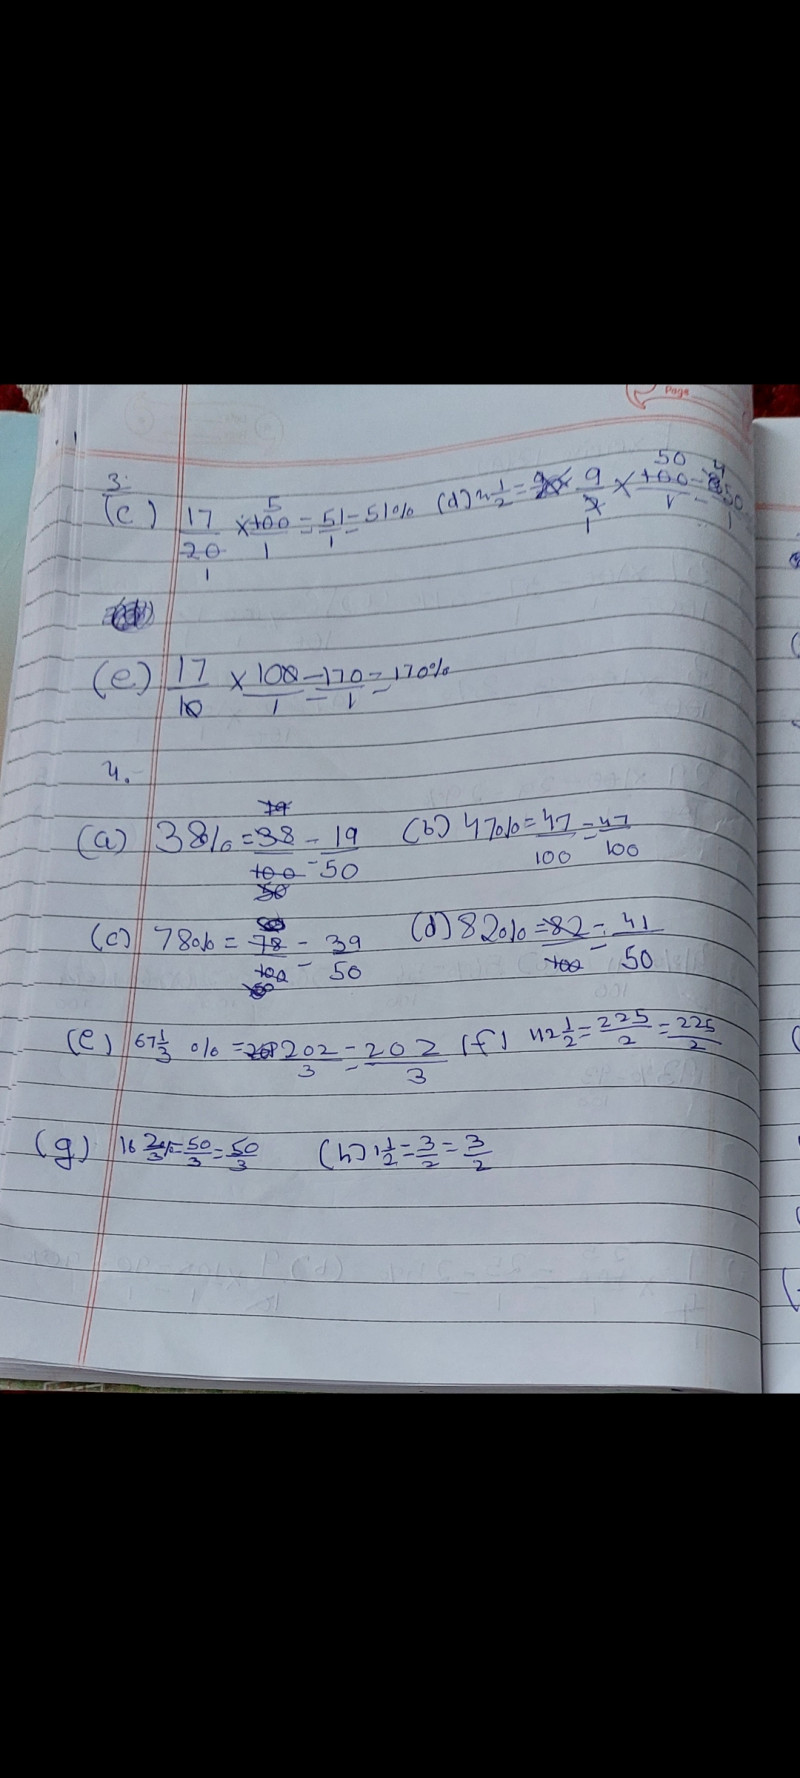 Page
3.
(c) 17/20 × 100/1 = 51/1 = 51% (d) 4 1/2 = 9/2 × 100/1 = 450/1
(e) 17/10 × 100/1 = 170/1 = 170%
4.
(a) 38% = 38/100 = 19/50 (b) 47% = 47/100 = 47/100
(c) 78% = 78/100 = 39/50 (d) 82% = 82/100 = 41/50
(e) 67 1/3 % = 202/3 = 202/3 (f) 112 1/2 = 225/2 = 225/2
(g) 16 2/3 % = 50/3 = 50/3 (h) 1 1/2 = 3/2 = 3/2